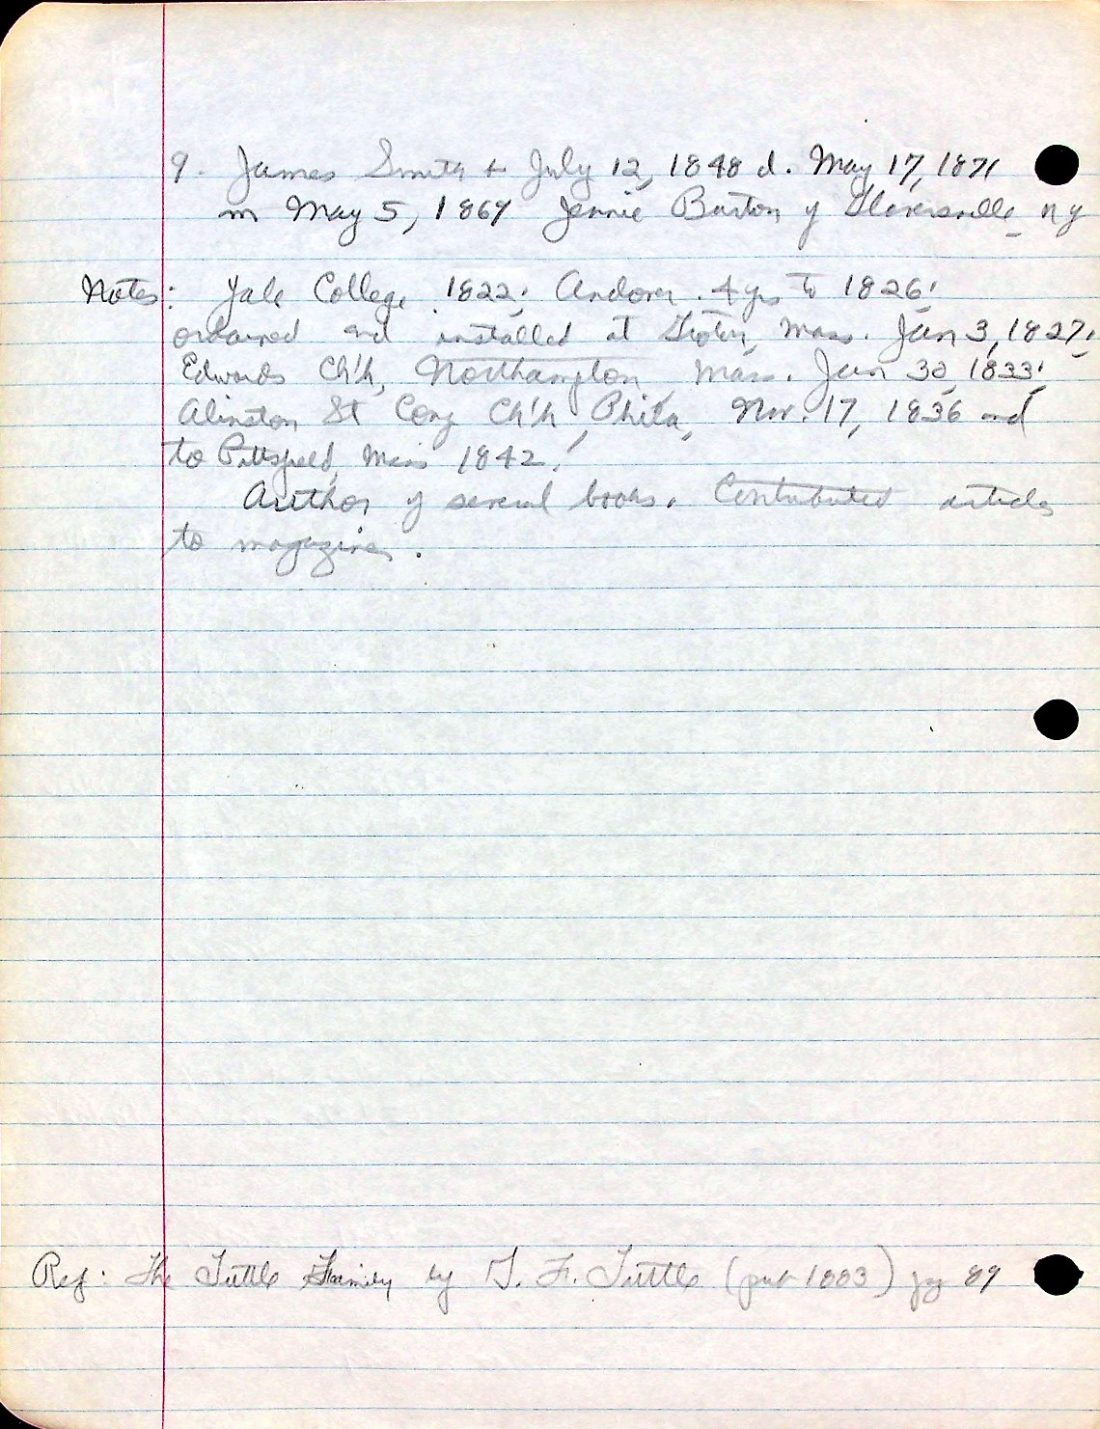 9. James Smith b July 12, 1848 d. May 17, 1871
m May 5, 1869 Jennie Burton of Gloversville NY
Notes: Yale College 1822; Andover 4 yrs to 1826;
ordained and installed at Groton, Mass. Jan 3, 1827;
Edwards Ch'h, Northampton Mass. Jan 30, 1833;
St Cong Ch'h, Phila, Nov. 17, 1836 and
to Pittsfield, Mass 1842.
Author of several books. Contributed articles
to magazines.
Ref: The Tuttle Family by G. F. Tuttle (pub 1883) pg 89